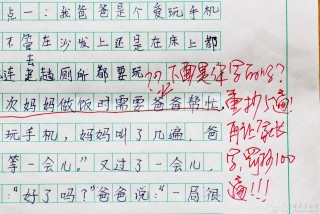 点一：我爸爸是个爱玩手机
不管在沙发上还是在床上都
连去趟厕所都要玩
次妈妈做饭时需要爸爸帮忙，
玩手机，妈妈叫了几遍，爸
等一会儿。”又过了一会儿，
：“好了吗？”爸爸说：“一局很
重抄5遍！
再让家长
写，罚抄100
遍！！！